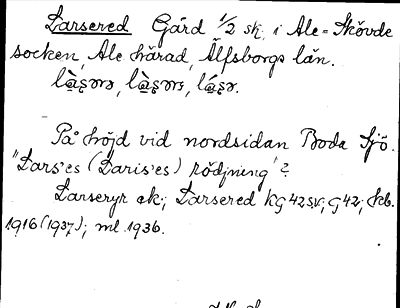 Larsered Gård 1/2 sk. i Ale-Skövde
socken, Ale härad, Älfsborgs län.
På höjd vid nordsidan Boda Sjö.
"Lars'es (Laris'es) rödjning"?
Larseryr ek.; Larsered KG42SV; G42; Skb.
1916 (1937); ml 1936.